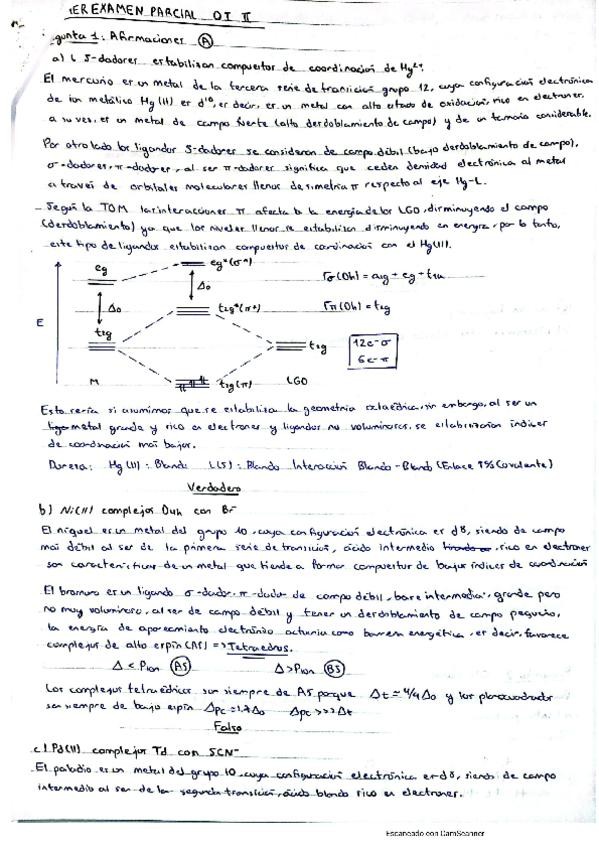 1ER EXAMEN PARCIAL QI II
gunta 1: Afirmaciones (A)
a) L S-dadores estabilizan compuestos de coordinación de Hg2+
El mercurio es un metal de la tercera serie de transición, grupo 12, cuya configuración electrónica
de ion metálico Hg(II) es d10, es decir, es un metal con alto estado de oxidación, rico en electrones.
a su vez, es un metal de campo fuerte (alto desdoblamiento de campo) y de un tamaño considerable.
Por otro lado los ligandos S-dadores se consideran de campo débil (bajo desdoblamiento de campo),
σ-dadores, π-dadores, al ser π-dadores significa que ceden densidad electrónica al metal
a través de orbitales moleculares llenos de simetría π respecto al eje Hg-L.
- Según la TOM las interacciones π afecta a la energía de los LGO, disminuyendo el campo
(desdoblamiento) ya que los niveles llenos se estabilizan disminuyendo en energía, por lo tanto,
este tipo de ligandos estabilizan compuestos de coordinación con el Hg(II).
eg
eg*(σ*)
Γσ(Oh) = a1g + eg + t1u
Δo
Δo
t2g*(π*)
Γπ(Oh) = t2g
E
t2g
t2g
12e-σ
6e-π
M
t2g(π)
LGO
Esto sería si asumimos que se estabiliza la geometría octaédrica, sin embargo, al ser un
metal grande y rico en electrones y ligandos no voluminosos, se estabilizarían índices
de coordinación más bajos.
Dureza: Hg(II): Blando L(S): Blando Interacción Blando-Blando (Enlace ↑% Covalente)
Verdadero
b) Ni(II) complejos D4h con Br-
El níquel es un metal del grupo 10, cuya configuración electrónica es d8, siendo de campo
más débil al ser de la primera serie de transición, ácido intermedio, rico en electrones
son características de un metal que tiende a formar compuestos de bajos índices de coordinación
El bromuro es un ligando σ-dador, π-dador de campo débil, base intermedia, grande pero
no muy voluminoso, al ser de campo débil y tener un desdoblamiento de campo pequeño,
la energía de apareamiento electrónico actuaría como barrera energética, es decir, favorece
complejos de alto espín (AS) => Tetraedros.
Δ < Pion (AS) Δ > Pion (BS)
Los complejos tetraédricos son siempre de AS porque Δt = 4/9 Δo y los planocuadrados
son siempre de bajo espín Δpc = 1.7Δo Δpc >>> Δt
Falso
c) Pd(II) complejos Td con SCN-
El paladio es un metal del grupo 10, cuya configuración electrónica es d8, siendo de campo
intermedio al ser de la segunda transición, ácido blando rico en electrones.
Escaneado con CamScanner